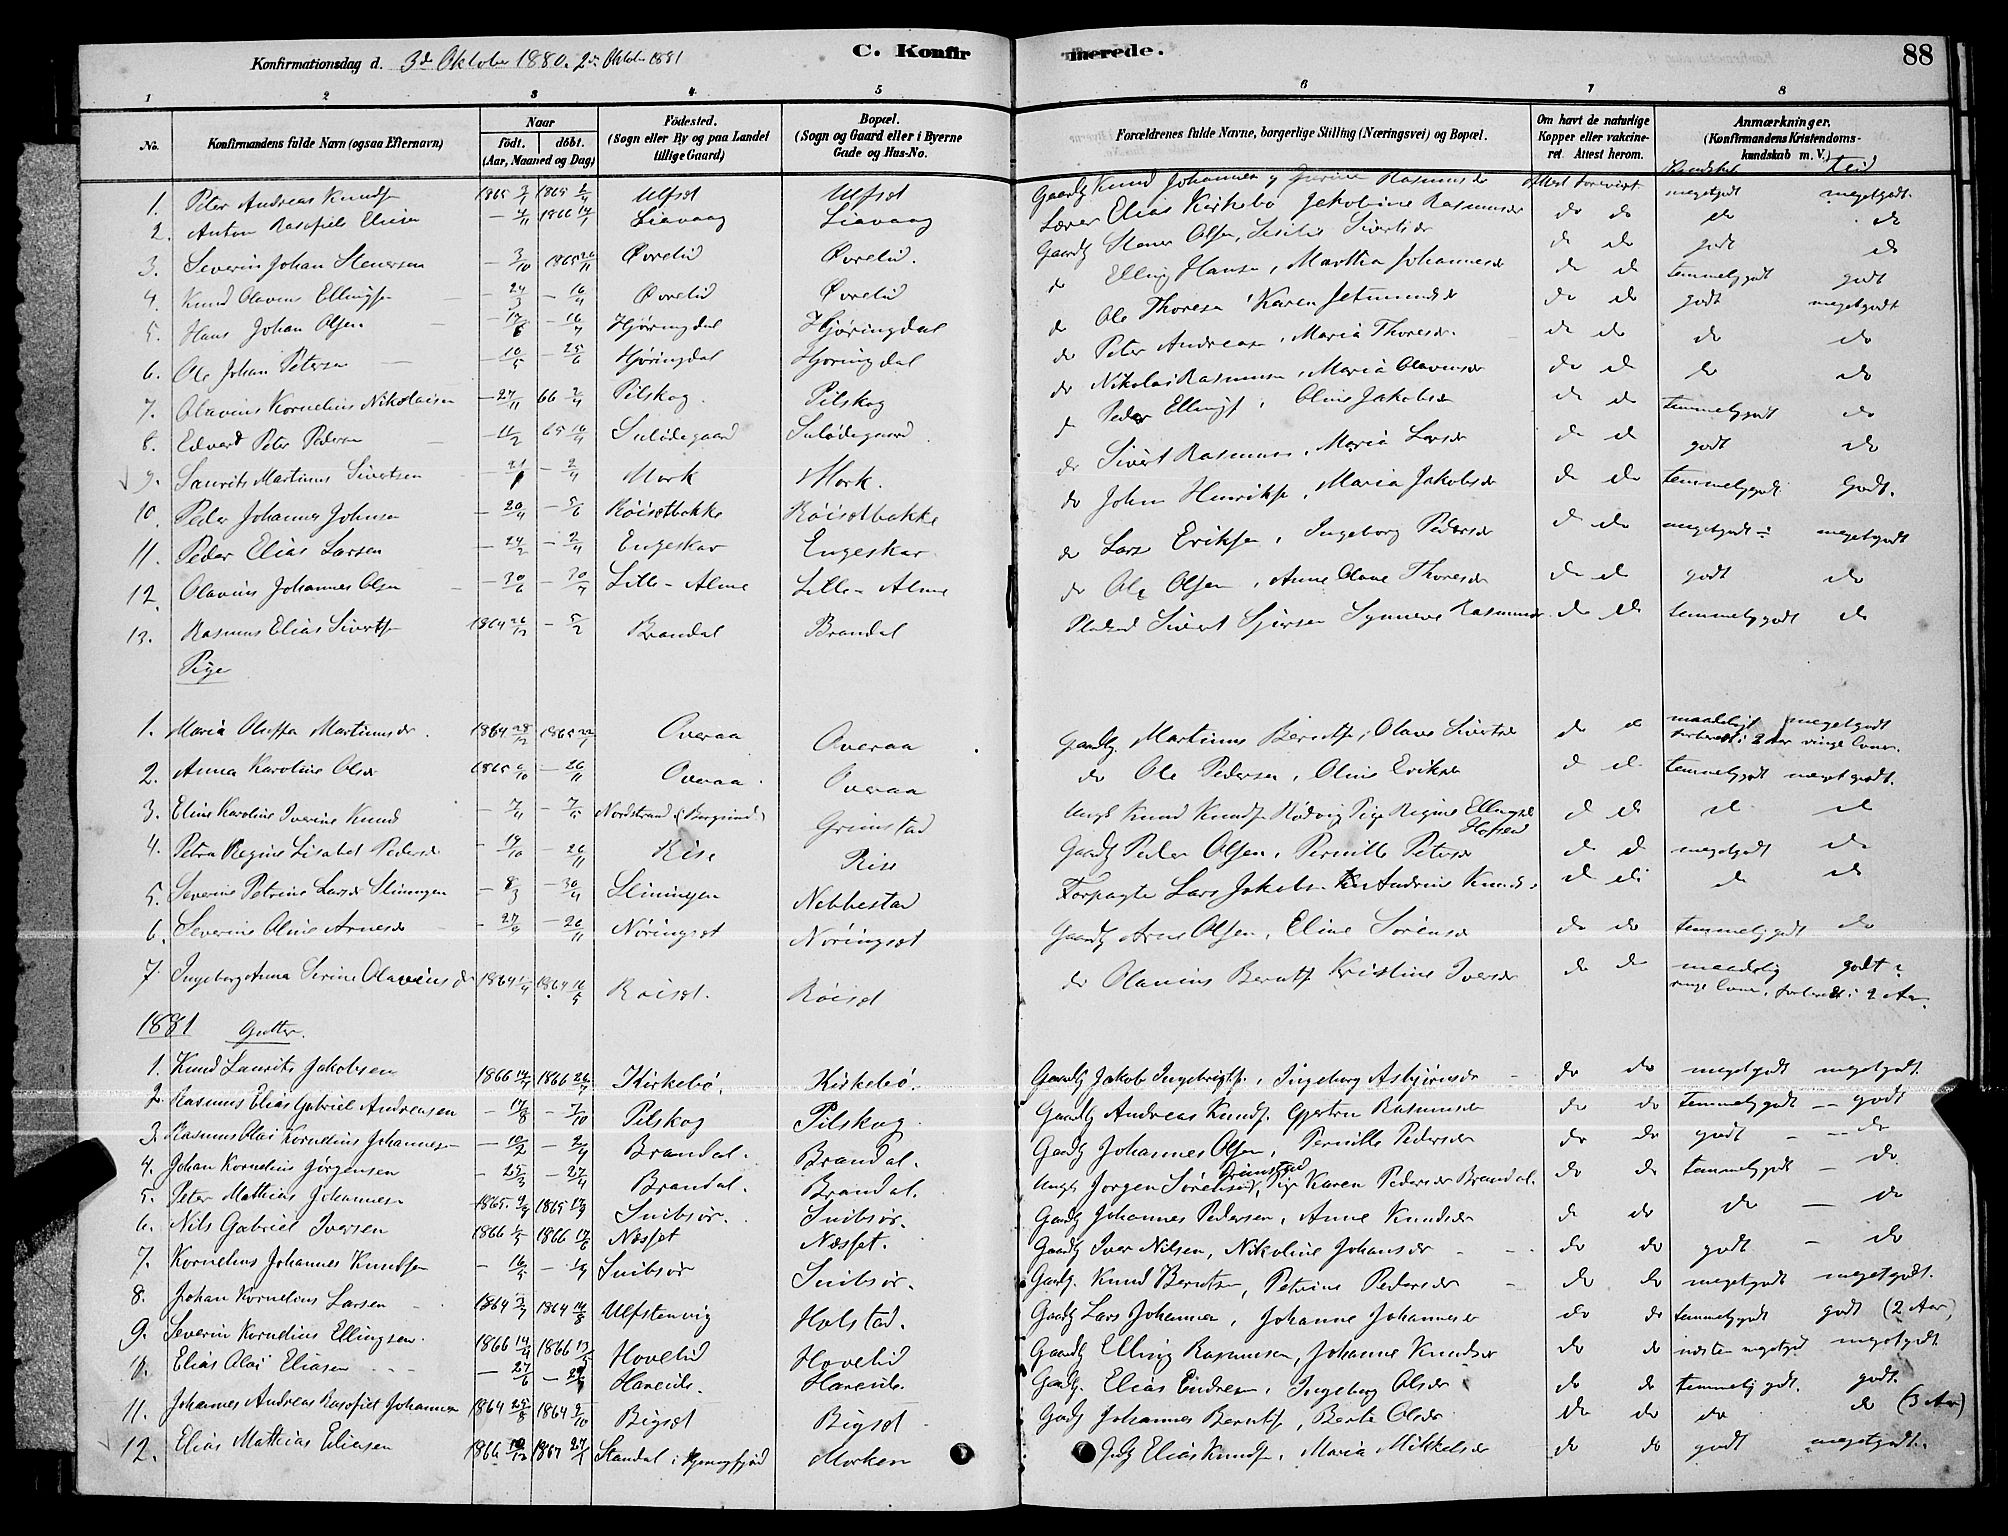 Konfirmationsdag d. 3de Oktober 1880. 2den Oktober 1881
C. Konfirmerede. 88
1 2 3 4 5 6 7 8
No. Konfirmandens fulde Navn (ogsaa Efternavn) Naar født. døbt. (Aar, Maaned og Dag) Fødested. (Sogn eller By og paa Landet tillige Gaard) Bopæl. (Sogn og Gaard eller i Byerne Gade og Hus-No. Forældrenes fulde Navne, borgerlige Stilling (Næringsvei) og Bopæl. Om havt de naturlige Kopper eller vakcineret. Attest herom. Anmærkninger. (Konfirmandens Kristendomskundskab m. V.)
Kundskab Flid
1. Peter Andreas Knuds 1865 1865 Ulfsæt Ulfsæt Gaardb Knud Johannesen Rasmusdr Attest forevist megetgodt megetgodt.
2. Anton Rasofiel Eliasen 1866 Liavaag Liavaag Lærer Elias Kirkebø Jakobine Rasmusdr do do do do
3. Severin Johan Stenersen 3/10 1865 26/11 Øvrelid Øvrelid. Gaardb Stener Olsen, Sivertsdr do do godt do
4. Knud Olavus Ellings 24/3 16/4 Øvrelid Øvrelid do Elling Hansen, Martha Johannesdr do do temmeliggodt godt
5. Hans Johan Olsen 16/7 Hjøringdal Hjøringdal do Ole Thoresen Karen Jetmundsdr do do godt megetgodt
6. Ole Johan Petersen 10/5 25/6 Hjøringdal Hjøringdal do Peter Andreasen, Maria Thoresdr. do do do do
7. Olavius Kornelius Nikolaisen 27/11 66 2/4 Pilskog. Pilskog do Nikolai Rasmusen, Maria Olavusdr do do do do
8. Edvard Peter Pedersen 11/2 65 16/4 Sulødegaard Sulødegaard do Peder Ellings, Oline Jakobsdr do do temmeliggodt do
9. Laurits Martinus Sivertsen 2/4 Mork Mork. do Sivert Rasmusen, Maria Larsdr do do godt do
10. Peder Johannes Johnsen 20/4 5/6 Røisetbakke Røisetbakke do John Henriks, Maria Jakobsdr do do temmeliggodt Godt.
11. Peder Elias Larsen 24/2 2/4 Engeskar Engeskar do Lars Eriksen, Ingeborg Pedersdr do do megetgodt megetgodt
12. Olavius Johannes Olsen 30/6 30/7 Lille-Alme Lille-Alme do Ole Olsen, Anne Olave Thoresdr do do godt do
13. Rasmus Elias Siverts 1864 26/12 5/2 Brandal Brandal Sivert Synneve Rasmusdr do do temmeliggodt do
Pige
1. Maria Oluffa Martinusdr. 1864 28/12 1865 Overaa Overaa Gaardb. Martinus Bernts, Olave Sivertsdr do do maadeligt megetgodt
forberedt i 2 Aar ringe Evner.
2. Anna Karoline Olsdr 1865 26/11 Overaa. Overaa do Ole Pedersen, Oline Eriksdr do do temmeliggodt meget godt.
3. Eline Karoline Iverine Knud Nordstrand (Borgund) Grimstad Ungk Knud Knuds Rødvig Pige Regine Ellingsdr do do do do
4. Petra Regine Lisabet Pedersdr 26/11 Rise Rise Gaardb Peder Olsen, Pernille Petersdr do do megetgodt do
5. Severine Petrine Larsdr Sliningen 8/3 30/4 Sliningen Nebbestad Forpagter Lars Jakobsen Andrine Knudsdr do do do do
6. Severine Oline Arnesdr 26/11 Nøringset Nøringset Gaardb Arne Olsen, Eline Sørensdr do do temmeliggodt do
7. Ingeborg Anna Serine Olaviusdr 1864 1864 16/5 Røiset. Røiset do Olavius Bernts Kristine Iversdr do do maadelig godt
ringe Evner. forberedt i 2 Aar.
1881 Gutter.
1. Knud Laurits Jakobsen 1866 1866 Kirkebø. Kirkebø. Gaardb Jakob Ingebrigts, Ingeborg Asbjørnsdr do do megetgodt megetgodt.
2. Rasmus Elias Gabriel Andreasen 17/8 7/10 Pilskog Pilskog. Gaardb Andreas Knuds, Gjertru Rasmusdr do do temmeliggodt godt
3. Rasmus Olai Kornelius Johannesen 10/2 2/4 Brandal. Brandal. Gaardb Johannes Olsen, Pernille Pedersdr do do godt do
4. Johan Kornelius Jørgensen 25/3 27/4 Brandal. Brandal. Ungk Jørgen Sørensen Grimstad, Pige Karen Pedersdr Brandal. do do temmeliggodt do.
5. Peter Mathias Johannesen 1865. 1865 Snibsør. Snibsør. Gaardb Johannes Pedersen, Anne Knudsdr do do do do
6. Nils Gabriel Iversen 1866 1866 Næsset Næsset. Gaardb Iver Nilsen, Nikoline Johansdr do do godt do
7. Kornelius Johannes Knuds 16/5 Snibsør Snibsør. Gaardb. Knud Berntsen, Petrine Pedersdr do do megetgodt megetgodt.
8. Johan Kornelius Larsen 1864 1864 14/8 Ulfstenvig Holstad. Gaardb Lars Johannesen, Johanne Johannesdr do do temmeliggodt godt (2 Aar)
9. Severin Kornelius Ellingsen. 1866 14/4 1866 Hovelid Hovelid Gaardb Elling Rasmusen, Johanne Knudsdr do do næsten megetgodt megetgodt.
10. Elias Olai Eliasen 27/6 Hareide. Hareide. Gaardb. Elias Endresen, Ingeborg Olsdr do do temmelig godt. godt.
11. Johannes Andreas Rasofiel Johannesen 1864 29/8 1864 2/10 Bigset Bigset Gaardb Johannes Bernts, Berte Olsdr do do do do (3 Aar)
12. Elias Mathias Eliasen 1866 1867 27/1 Standal i Hjørungfjord Morken Gdb Elias Knuds, Maria Mikkelsdr do do godt megetgodt.